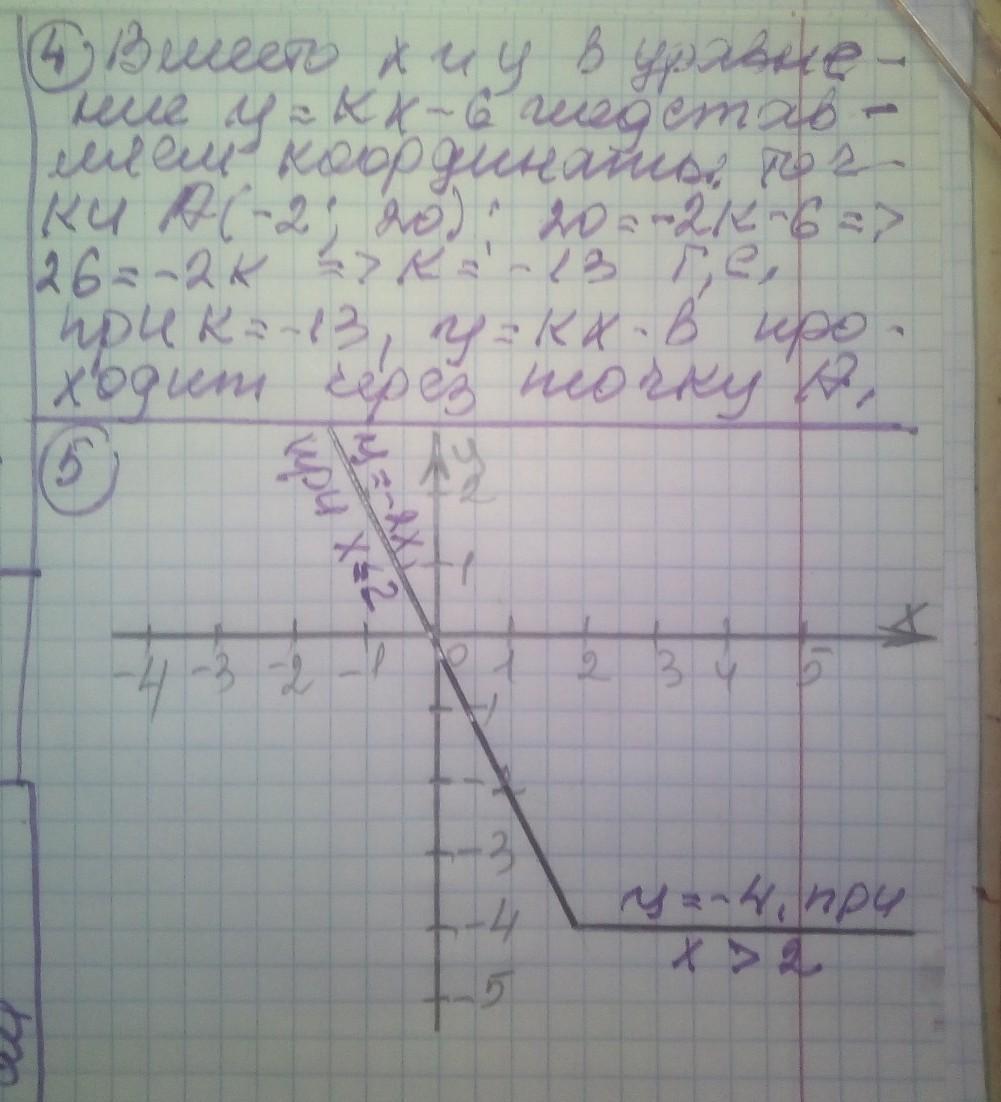 ④ Вместо x и y в уравне-
ние y = kx - 6 подстав-
ляем координаты точ-
ки A(-2; 20): 20 = -2k - 6 =>
26 = -2k => k = -13 т,е,
при k = -13, y = kx - 6 про-
ходит через точку A.
⑤
y = -2x
при x ≤ 2
y
2
1
x
-4 -3 -2 -1 0 1 2 3 4 5
-1
-2
-3
-4
-5
y = -4, при
x > 2